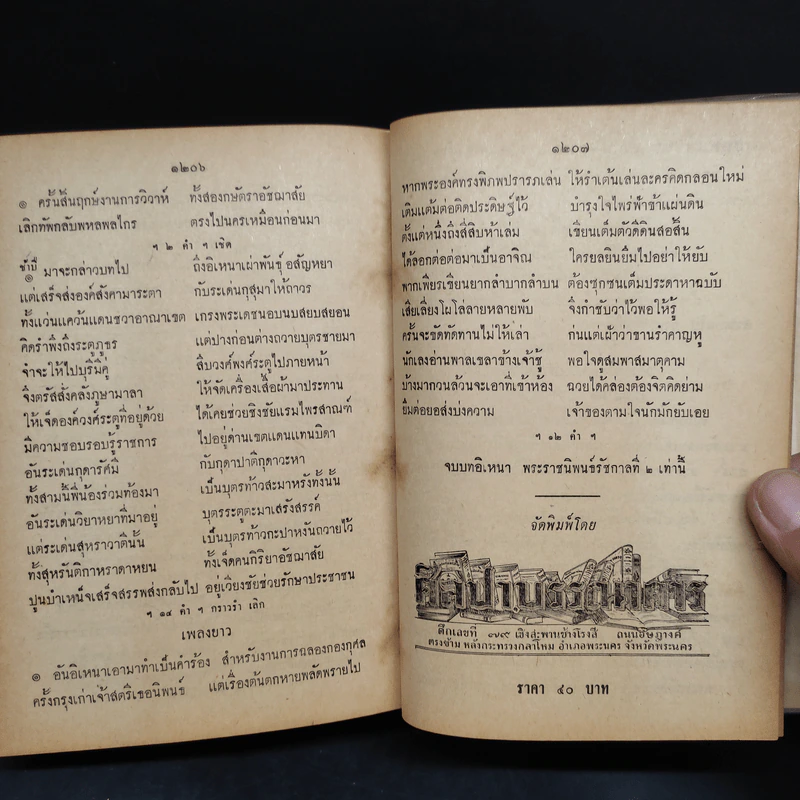 ๑๒๐๖
๏ ครั้นสิ้นฤกษ์งานการวิวาห์ ทั้งสองกษัตราอัชฌาสัย
เลิกทัพกลับพหลพลไกร ตรงไปนครเหมือนก่อนมา
ฯ ๒ คำ ฯ เชิด
ช้าปี่
๏ มาจะกล่าวบทไป ถึงอิเหนาเผ่าพันธุ์ อสัญหยา
แต่เสร็จส่งองค์สังคามาระตา กับระเด่นกุสุมาให้ถาวร
ทั้งแว่นแคว้นแดนชวาอาณาเขต เกรงพระเดชนอบนบสยบสยอน
คิดรำพึงถึงระตูภูธร แต่ปางก่อนต่างถวายบุตรชายมา
จำจะให้ไปบุรีมีคู่ สืบวงศ์พงศ์ระตูไปภายหน้า
จึงตรัสสั่งคลังภูษามาลา ให้จัดเครื่องเสื้อผ้ามาประทาน
ให้เจ็ดองค์วงศ์ระตูที่อยู่ด้วย ได้เคยช่วยชิงชัยแรมไพรสาณฑ์
มีความชอบรอบรู้ราชการ ไปอยู่ด่านเขตแดนแทนบิดา
อันระเด่นกุดารัศมี กับกุดาปาตีกุดาวะหา
ทั้งสามนี้พี่น้องร่วมท้องมา เป็นบุตรท้าวสะมาหรังทั้งนั้น
อันระเด่นวิยาหยาที่มาอยู่ บุตรระตูตะมาเสรังสรรค์
แต่ระเด่นสุหราวาตีนั้น เป็นบุตรท้าวกะปาหงันถวายไว้
ทั้งสุหรันติกาหราดาหยน ทั้งเจ็ดคนกิริยาอัชฌาสัย
ปูนบำเหน็จเสร็จสรรพส่งกลับไป อยู่เวียงชัยช่วยรักษาประชาชน
ฯ ๑๔ คำ ฯ กราวรำ เลิก
เพลงยาว
๏ อันอิเหนาเอามาทำเป็นคำร้อง สำหรับงานการฉลองกองกุศล
ครั้งกรุงเก่าเจ้าสตรีเธอนิพนธ์ แต่เรื่องต้นตกหายพลัดพรายไป
๑๒๐๗
หากพระองค์ทรงพิภพปรารภเล่น ให้รำเต้นเล่นละครคิดกลอนใหม่
เติมแต้มต่อติดประดิษฐ์ไว้ บำรุงใจไพร่ฟ้าข้าแผ่นดิน
ตั้งแต่หนึ่งถึงสี่สิบห้าเล่ม เขียนเต็มตัวดีดินสอสิ้น
ได้ลอกต่อต่อมาเป็นอาจิณ ใครยลยินยืมไปอย่าให้ยับ
พากเพียรเขียนยากลำบากลำบน ต้องซุกซนเต็มประดาหาฉบับ
เสียเสี่ยงโผโล่ลายหลายพับ จึงกำชับว่าไว้พอให้รู้
ครั้นจะขัดทัดทานไม่ให้เล่า ก่นแต่เฝ้าว่าขานรำคาญหู
นักเลงอ่านพาลเชลาข้างเจ้าชู้ พอใจดูสมพาสมาตุคาม
บ้างมากวนล้วนจะเอาที่เข้าห้อง ฉวยได้คล่องต้องจิตคิดย่าม
ยืมต่อยอส่งบ่งความ เจ้าของตามใจนักมักยับเอย
ฯ ๑๒ คำ ฯ
จบบทอิเหนา พระราชนิพนธ์รัชกาลที่ ๒ เท่านี้
จัดพิมพ์โดย
ศิลปาบรรณาคาร
ตึกเลขที่ ๗๔๙ เชิงสะพานช้างโรงสี ถนนอัษฎางค์
ตรงข้าม หลังกระทรวงกลาโหม อำเภอพระนคร จังหวัดพระนคร
ราคา ๔๐ บาท